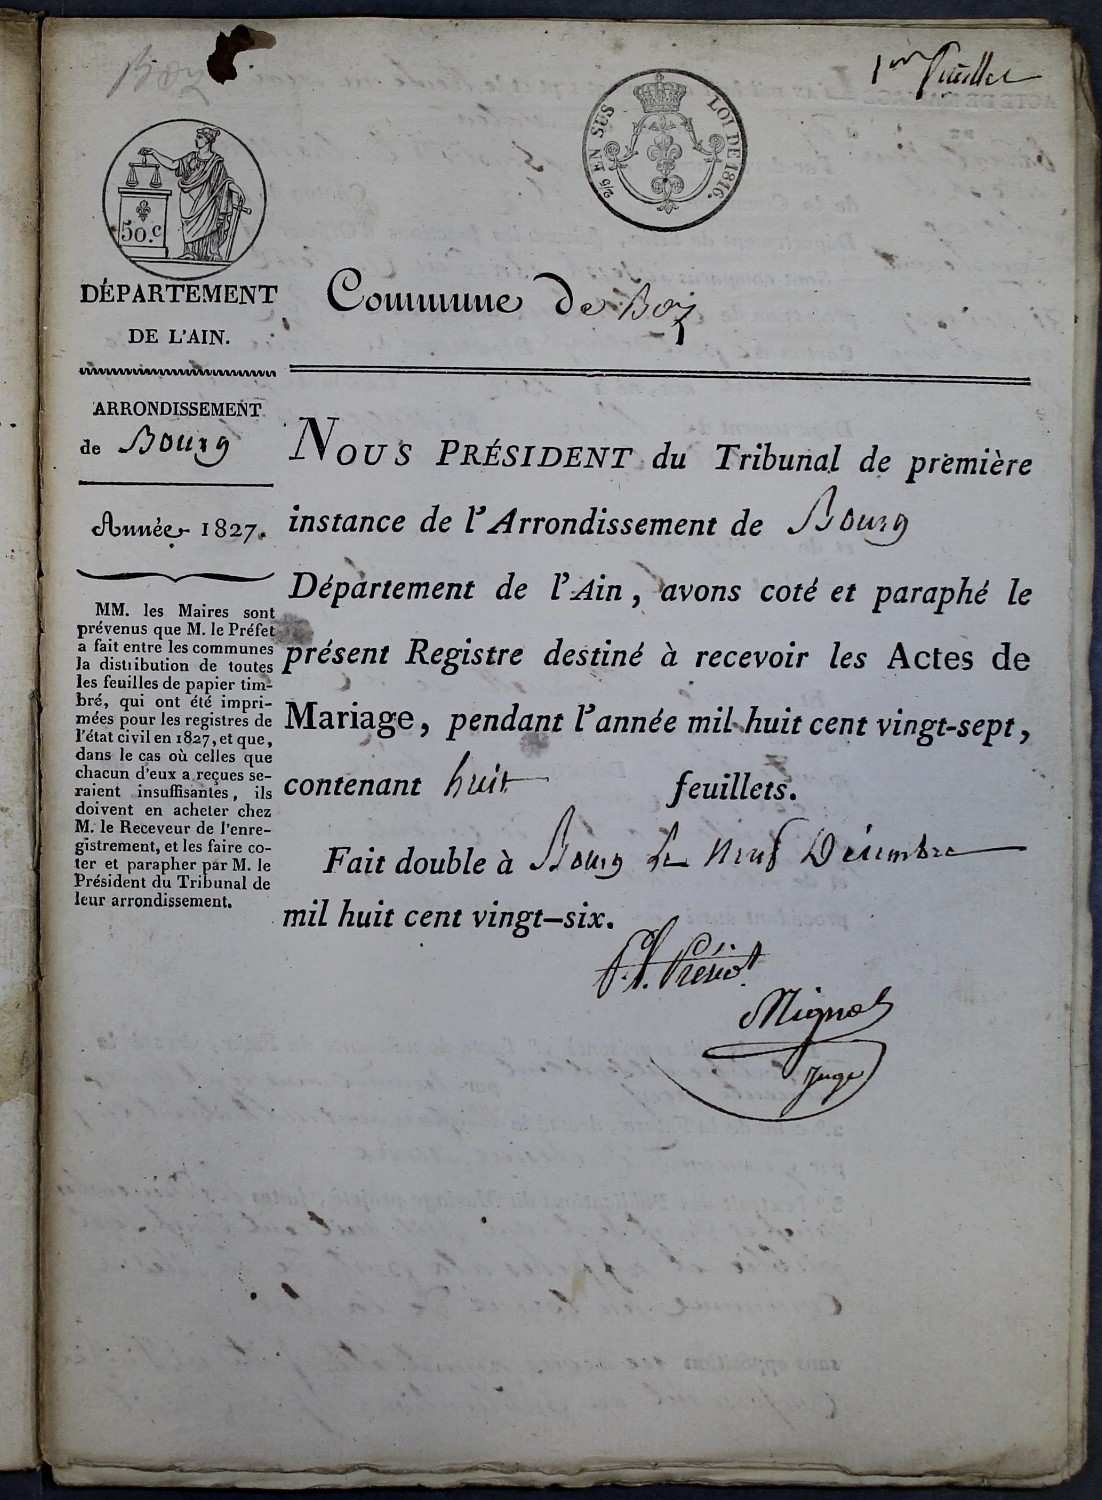 Boz
1er feuillet
2/5 EN SUS
LOI DE 1816.
50.c
DÉPARTEMENT
DE L'AIN.
Commune de Boz
ARRONDISSEMENT
de Bourg
Année 1827.
MM. les Maires sont
prévenus que M. le Préfet
a fait entre les communes
la distribution de toutes
les feuilles de papier tim-
bré, qui ont été impri-
mées pour les registres de
l'état civil en 1827, et que,
dans le cas où celles que
chacun d'eux a reçues se-
raient insuffisantes, ils
doivent en acheter chez
M. le Receveur de l'enre-
gistrement, et les faire co-
ter et parapher par M. le
Président du Tribunal de
leur arrondissement.
NOUS PRÉSIDENT du Tribunal de première
instance de l'Arrondissement de Bourg
Département de l'Ain, avons coté et paraphé le
présent Registre destiné à recevoir les Actes de
Mariage, pendant l'année mil huit cent vingt-sept,
contenant huit feuillets.
Fait double à Bourg le neuf Décembre
mil huit cent vingt-six.
Mignot
Juge